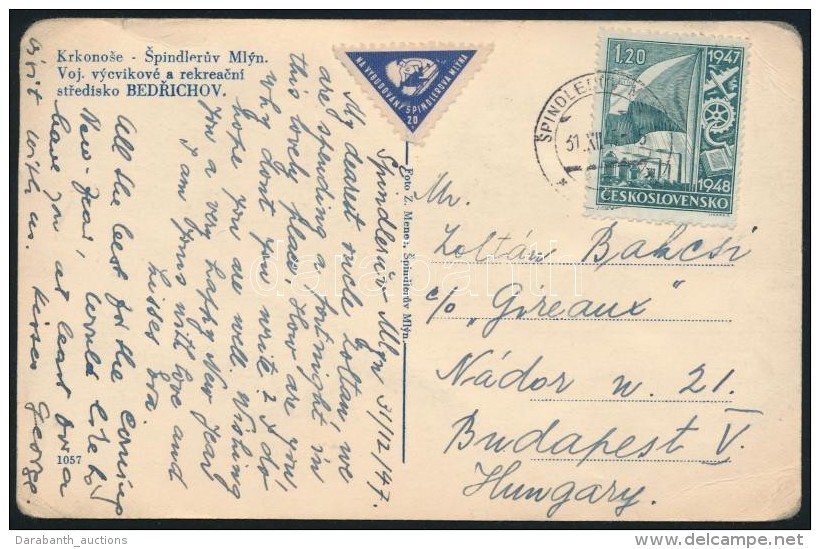 Krkonoše - Špindlerův Mlýn.
Voj. výcvikové a rekreační
středisko BEDŘICHOV.
NA VYBUDOVÁNÍ ŠPINDLEROVA MLÝNA
20
1.20 1947
1948
ČESKOSLOVENSKO
ŠPINDLERŮV
31.XII.
Špindlerův Mlýn 31/12/47.
My dearest uncle Zoltán, we
are spending a fortnight in
this lovely place. How are you,
why don't you write? I do
hope you are well. Wishing
you a very happy New Year
I am yours with love and
kisses Eva
All the best for the coming
New-Year, would like to
have you at least for a
visit with us. Kisses George.
1057
Foto Z. Špindlerův Mlýn.
Mr.
Zoltán Bakcsi
c/o "Gireaux"
Nádor u. 21.
Budapest V.
Hungary.
darabanth
Darabanth_auctions
delcampe.net